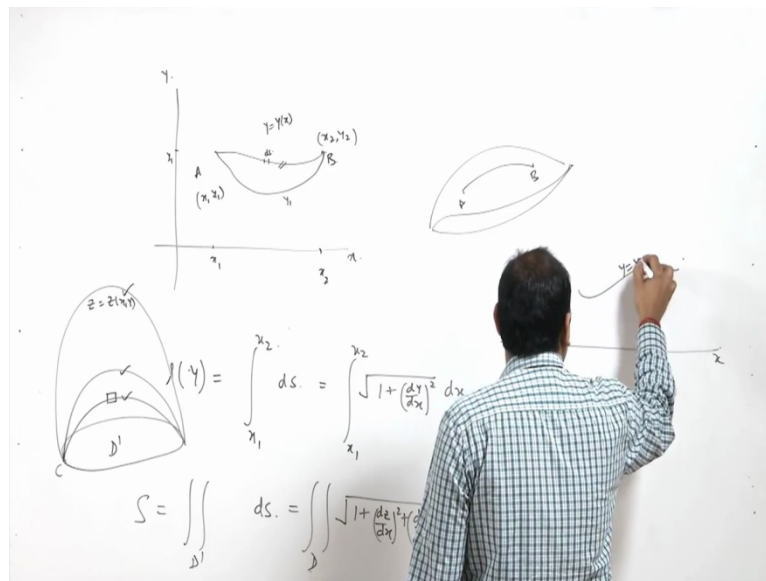 y
y=y(x)
(x2, y2)
A
B
(x, y1)
y1
x1
x2
x
A
B
y=
x
z=z(x,y)
D'
C
l(y) = ∫x1^x2 ds. = ∫x1^x2 √1+(dy/dx)² dx
S = ∬D' ds. = ∬D √1+(dz/dx)²+(d